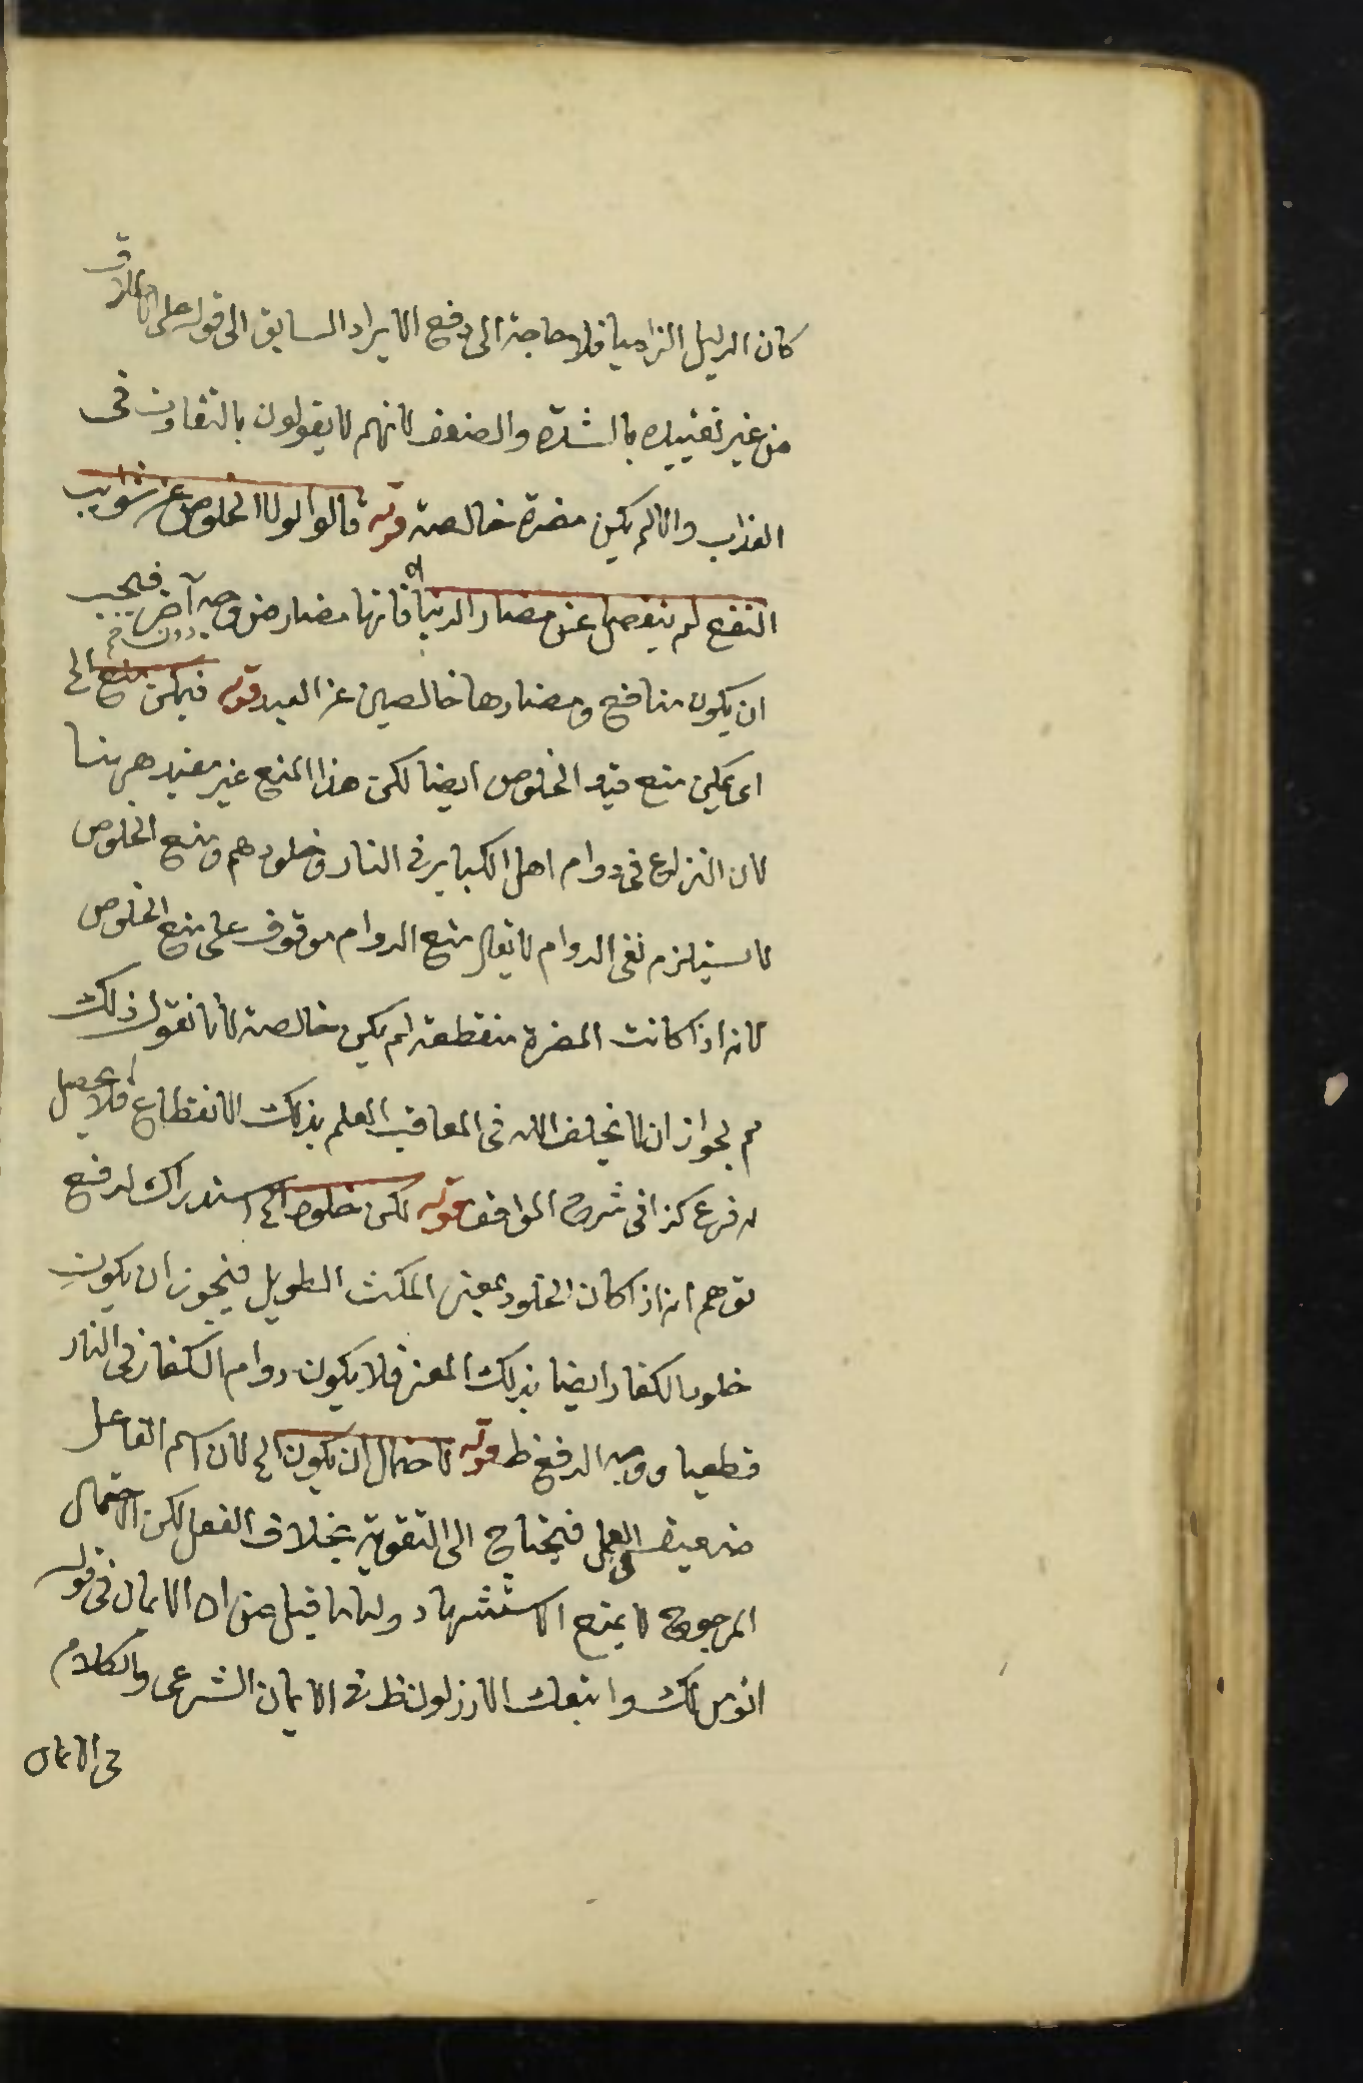 كان الدليل الزاميا فلا حاجة الى دفع الايراد السابق الى قوله على الاطلاق
من غير تقييده بالشدة والضعف لانهم لا يقولون بالتفاوت فى
العذاب والا لم يكن مضرة خالصة قوله قالوا لولا الخلوص عن شوايب
النفع لم ينفصل عن مضار الدنيا فانها مضار من وجه آخر فيجب
دون
ان يكون منافع ومضارها خالصين عن القيد قوله فيمكن منع الخ
اى يمكن منع قيد الخلوص ايضا لكن هذا المنع غير مفيد ههنا
لان النزاع فى دوام اهل الكباير فى النار وخلودهم ومنع الخلوص
لا يستلزم نفى الدوام لا يقال منع الدوام موقوف على منع الخلوص
لانه اذا كانت المضرة منقطعة لم يكن خالصة لانا نقول ذلك
مم لجواز ان لا يخلف الله فى المعاقب العلم بذلك الانقطاع فلا يحصل
له فرع كذا فى شرح المواقف قوله لكن خلوص الخ استدراك لدفع
توهم انه اذا كان الخلود بمعنى المكث الطويل فيجوز ان يكون
خلود الكفار ايضا بذلك المعنى فلا يكون دوام الكفار فى النار
قطعيا ووجه الدفع ظ قوله لاحتمال ان يكون الخ لان اسم الفاعل
ضعيف العمل فيحتاج الى التقوية بخلاف الفعل لكن الاحتمال
المرجوح لا يمنع الاستشهاد ولما ما قيل من ان الايمان فى قوله
انؤمن لك واتبعك الارذلون ظ فى الايمان الشرعى والكلام
فى الايمان